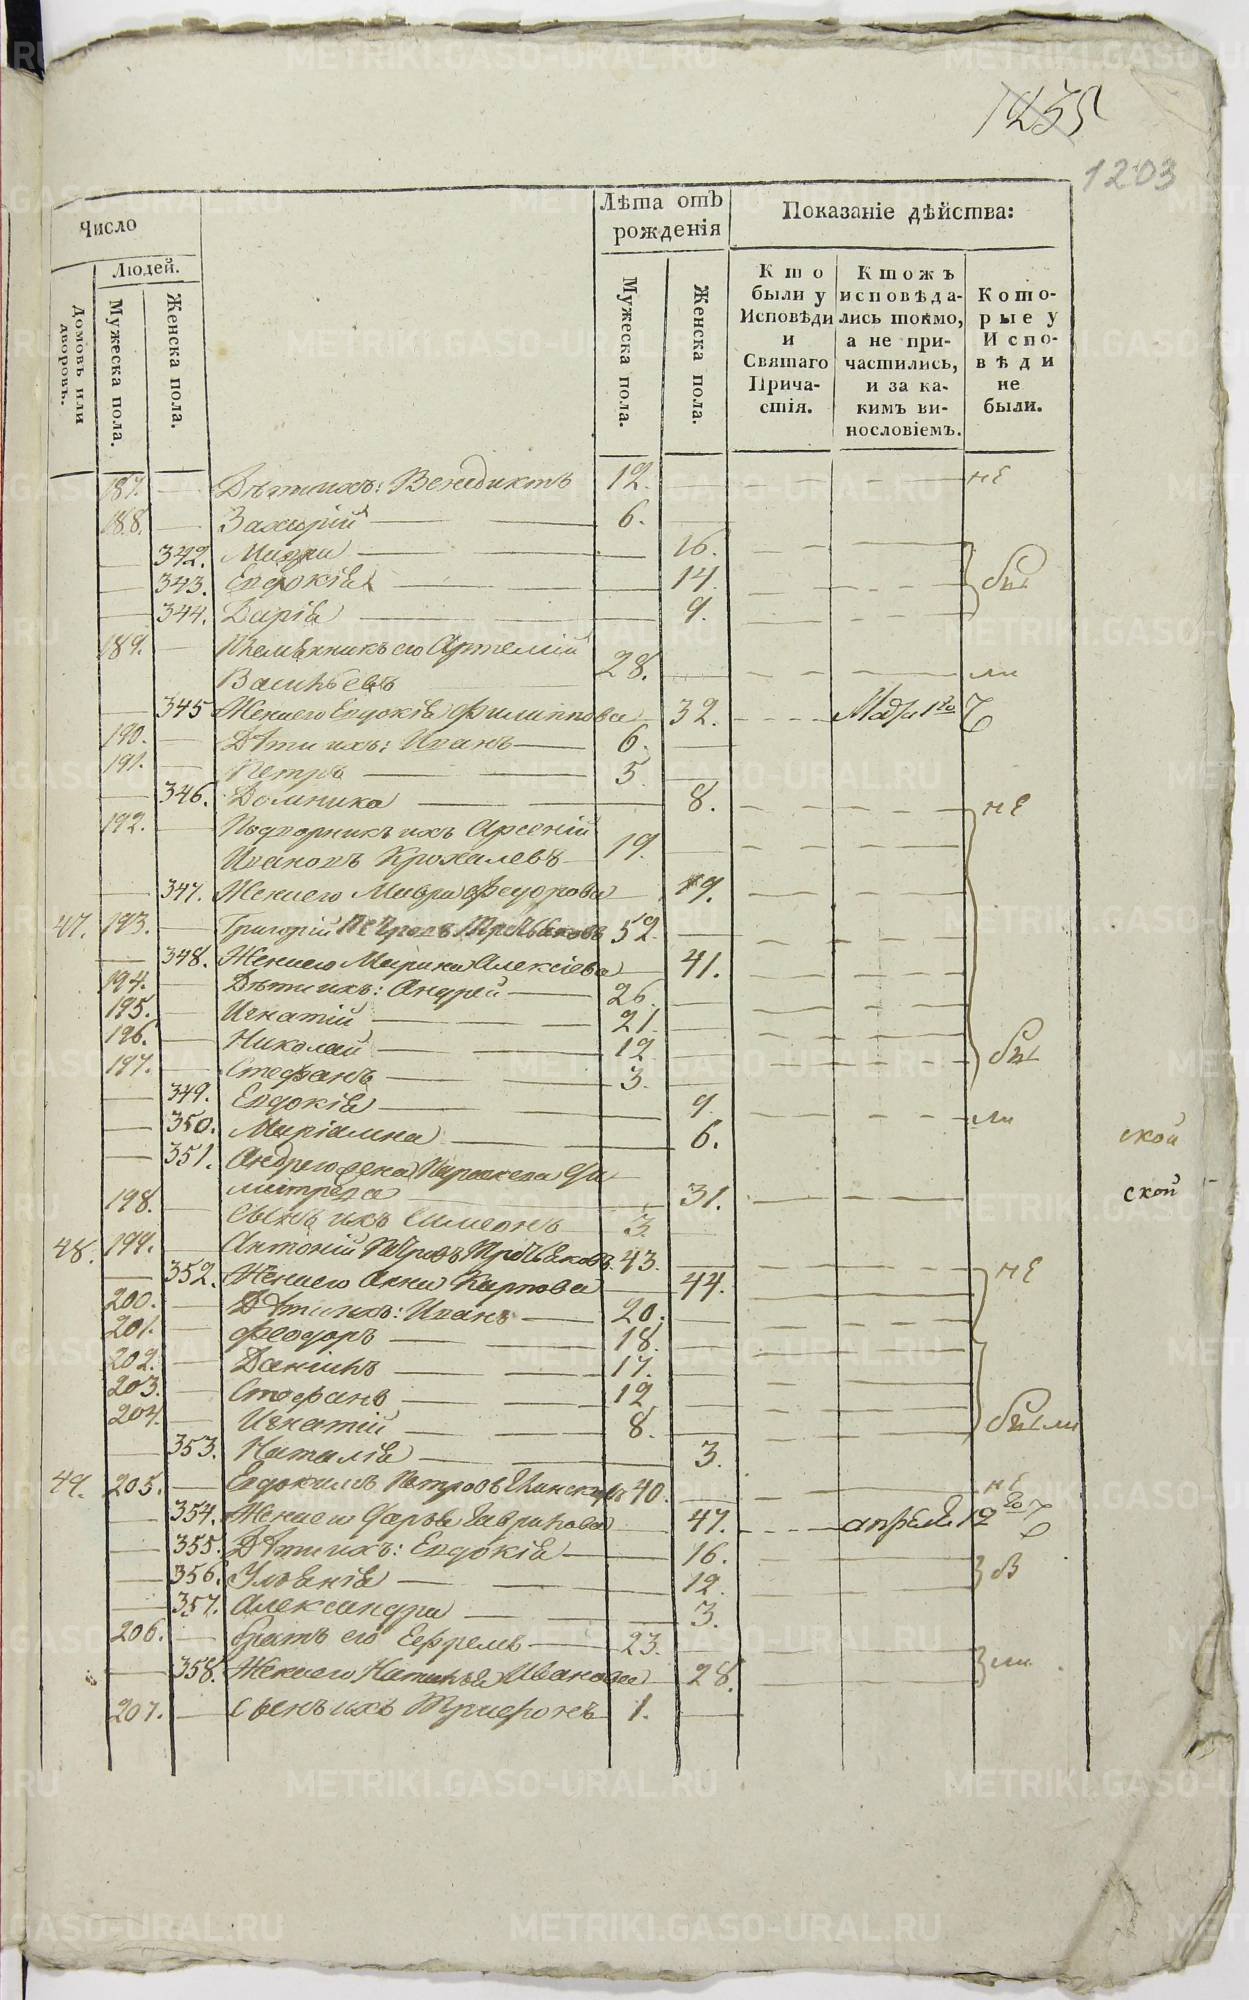 1235
1203
Число
Людей.
Домовъ или дворовъ.
Мужеска пола.
Женска пола.
Лѣта отъ рожденія
Мужеска пола.
Женска пола.
Показаніе дѣйства:
Кто были у Исповѣди и Святаго Причастія.
Ктожъ исповѣдались токмо, а не причастились, и за какимъ винословіемъ.
Которые у Исповѣди не были.
187. Дѣти ихъ: Венедиктъ 12. не
188. Захарій 6.
342. Мавра 16.
343. Евдокія 14. бы
344. Дарія 9.
189. Племянникъ его Артемій
Васильевъ 28. ли
345 Жена его Евдокія Филиппова 32.
190. Дѣти ихъ: Иванъ 6.
191. Петръ 5.
346. Домника 8. не
192. Подворникъ ихъ Арсеній
Ивановъ Крохалевъ 19.
347. Жена его Мавра Феодорова 19.
47. 193. Григорій Петровъ Третьяковъ 52
348. Жена его Марина Алексіева 41.
194. Дѣти ихъ: Андрей 26.
195. Игнатій 21.
196. Николай 12
197. Стефанъ 3. бы
349. Евдокія 9
350. Маріамна 6. ли
ской
351. Андрея жена Параскева Ди
митрева 31.
ской
198. Сынъ ихъ Симеонъ 3.
48. 199. Антоній Петровъ Третьяковъ 43.
352. Жена его Анна Карпова 44. не
200. Дѣти ихъ: Иванъ 20.
201. Феодоръ 18.
202. Данилъ 17.
203. Стефанъ 12
204. Игнатій 8. были
353. Наталія 3.
49. 205. Евдокимъ Петровъ 40. не
354. Жена его Фекла Гаврилова 47. апреля 12
355. Дѣти ихъ: Евдокія 16. б
356. Уліанія 12.
357. Александра 3.
206. Братъ его Ефремъ 23.
358. Жена его Наталья Иванова 28. ли
207. Сынъ ихъ Трифонъ 1.
METRIKI.GASO-URAL.RU